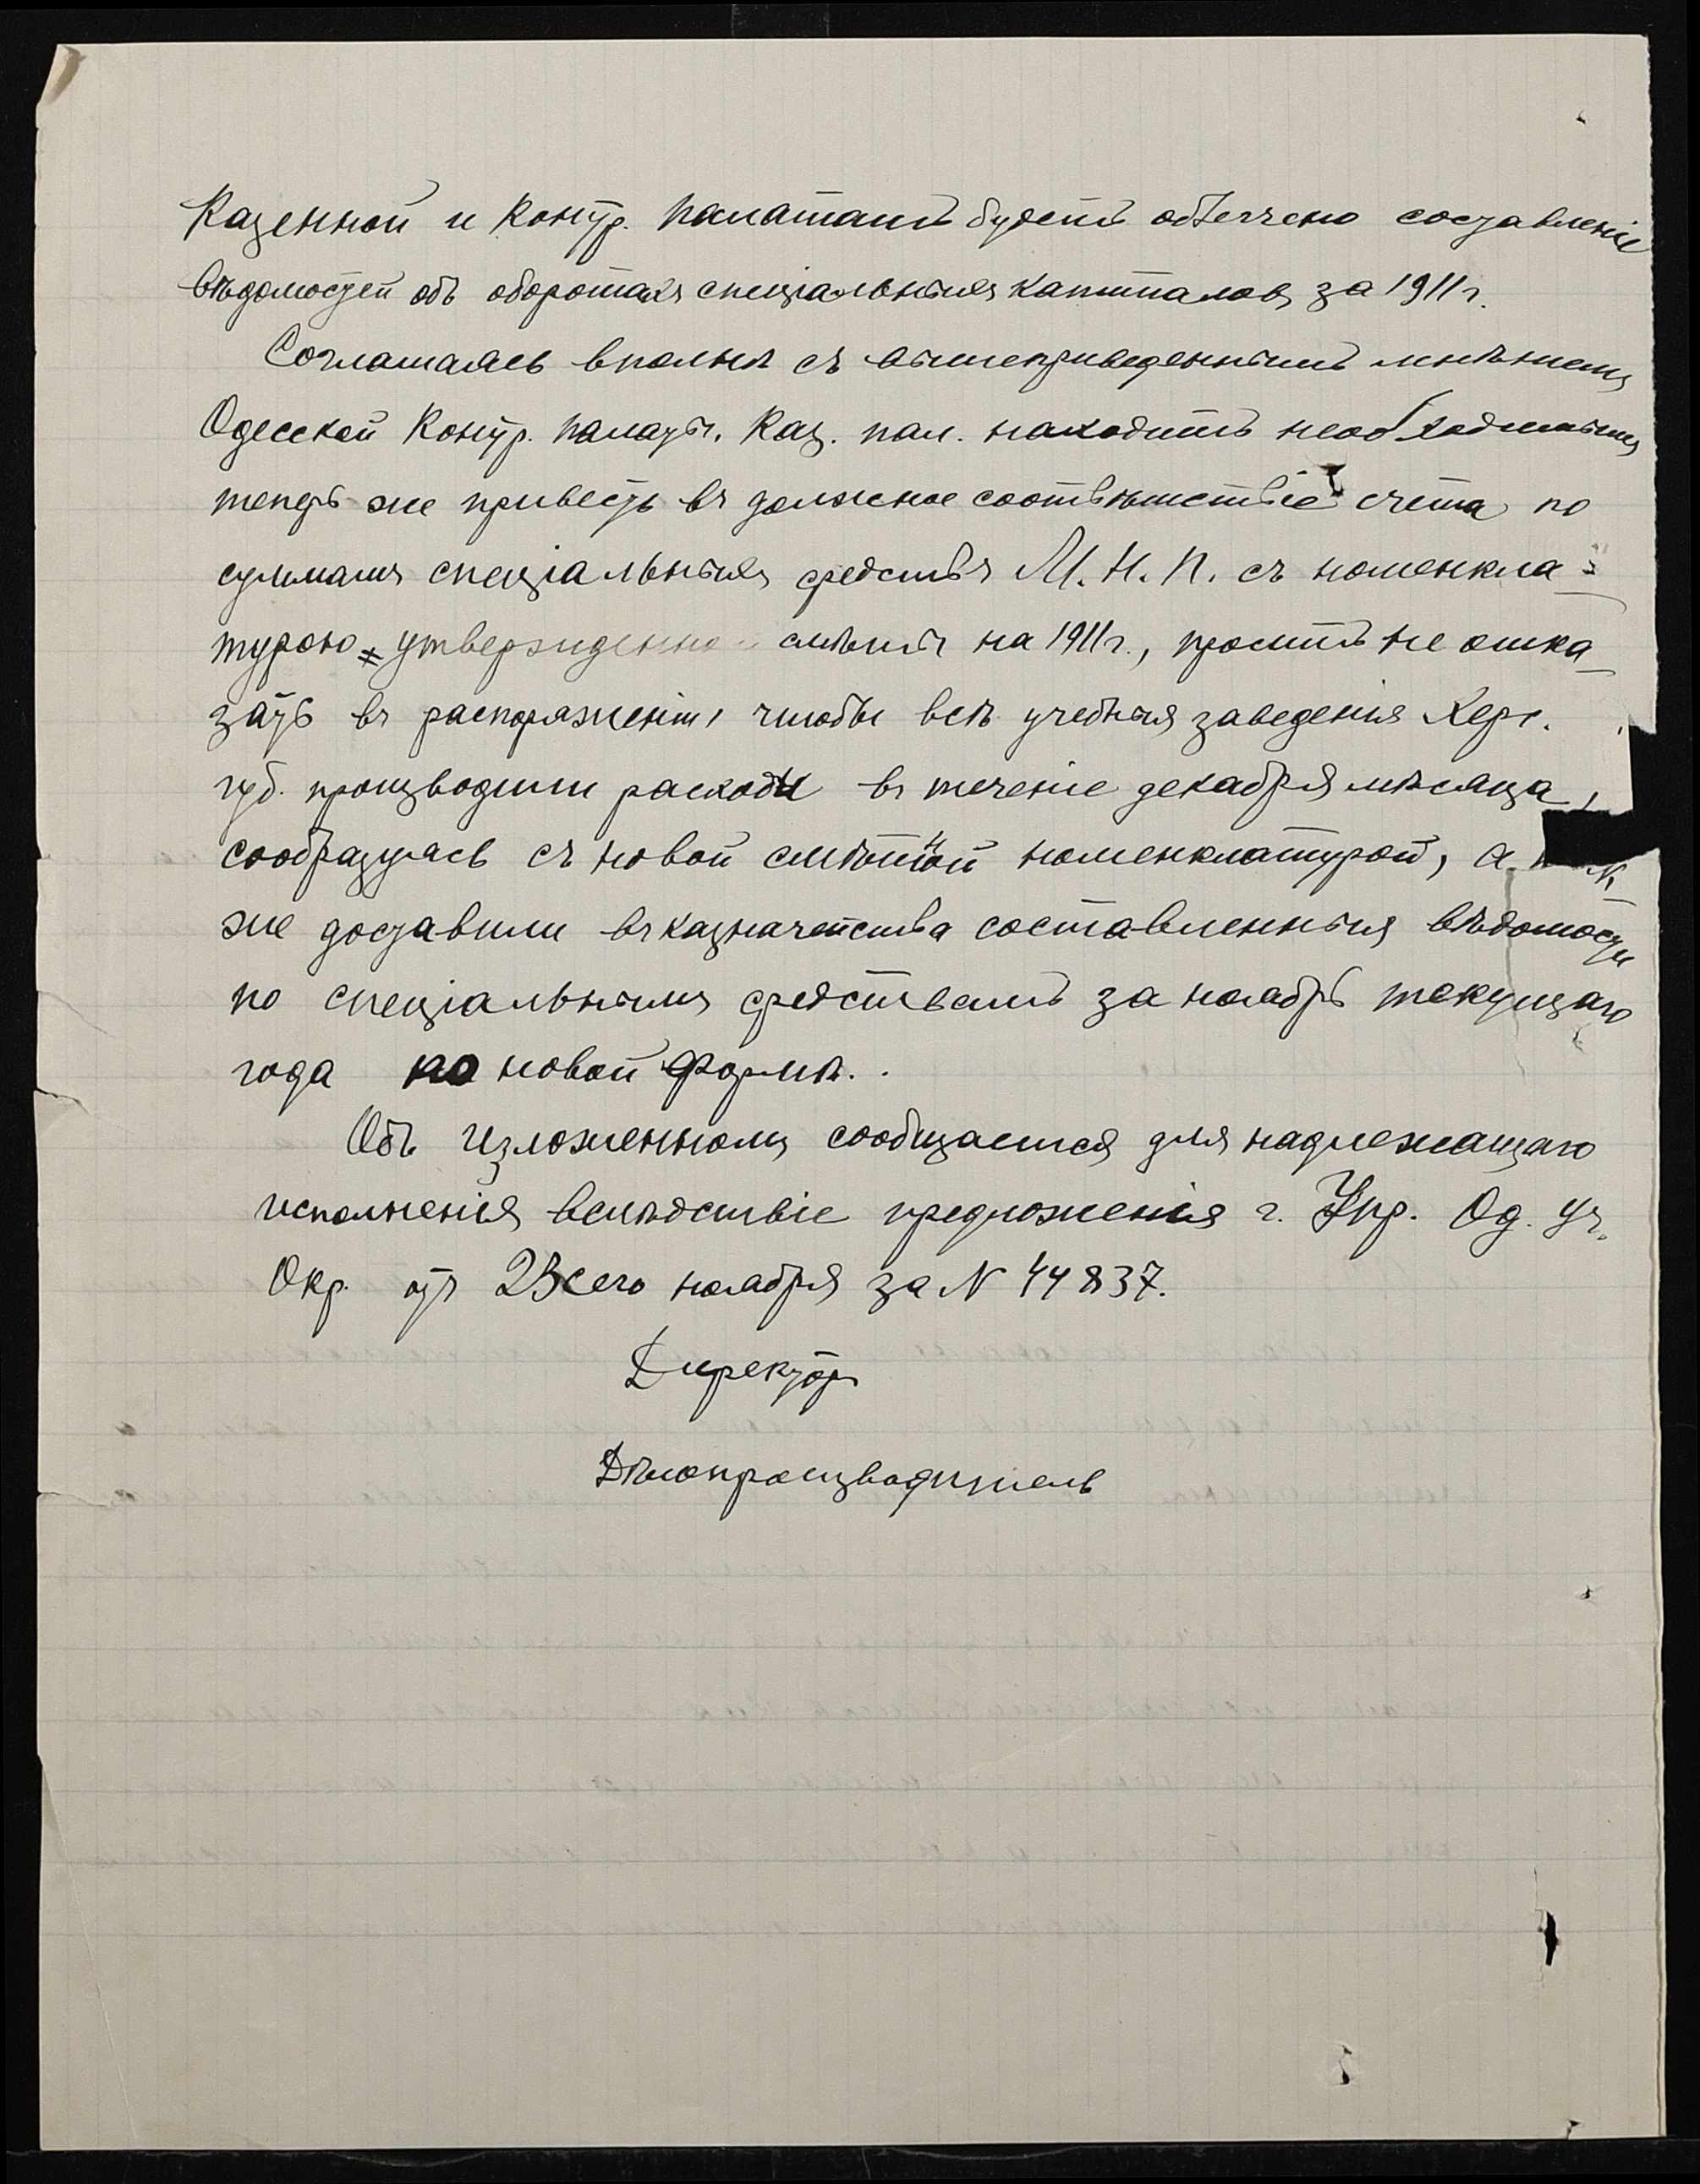 Казенной и Контр. палатамъ будетъ облегчено составленіе
вѣдомостей объ оборотахъ спеціальныхъ капиталовъ за 1911 г.
Соглашаясь вполнѣ съ вышеприведеннымъ мнѣніемъ
Одесской Контр. палаты, Каз. пал. находитъ необходимымъ
теперь же привесть въ должное соотвѣтствіе счета по
суммамъ спеціальныхъ средствъ М. Н. П. съ номенкла-
турою утвержденно смѣтъ на 1911 г., проситъ не отка-
зать въ распоряженіи, чтобы всѣ учебныя заведенія Херс.
губ. производили расходы въ теченіе декабря мѣсяца,
сообразуясь съ новой смѣтной номенклатурой, а
же доставили въ казначейства составленныя вѣдомости
по спеціальнымъ средствамъ за ноябрь текущаго
года по новой формѣ.
Объ изложенномъ сообщается для надлежащаго
исполненія вслѣдствіе предложенія г. Упр. Од. Уч.
Окр. отъ 23 сего ноября за N 44837.
Директоръ
Дѣлопроизводитель